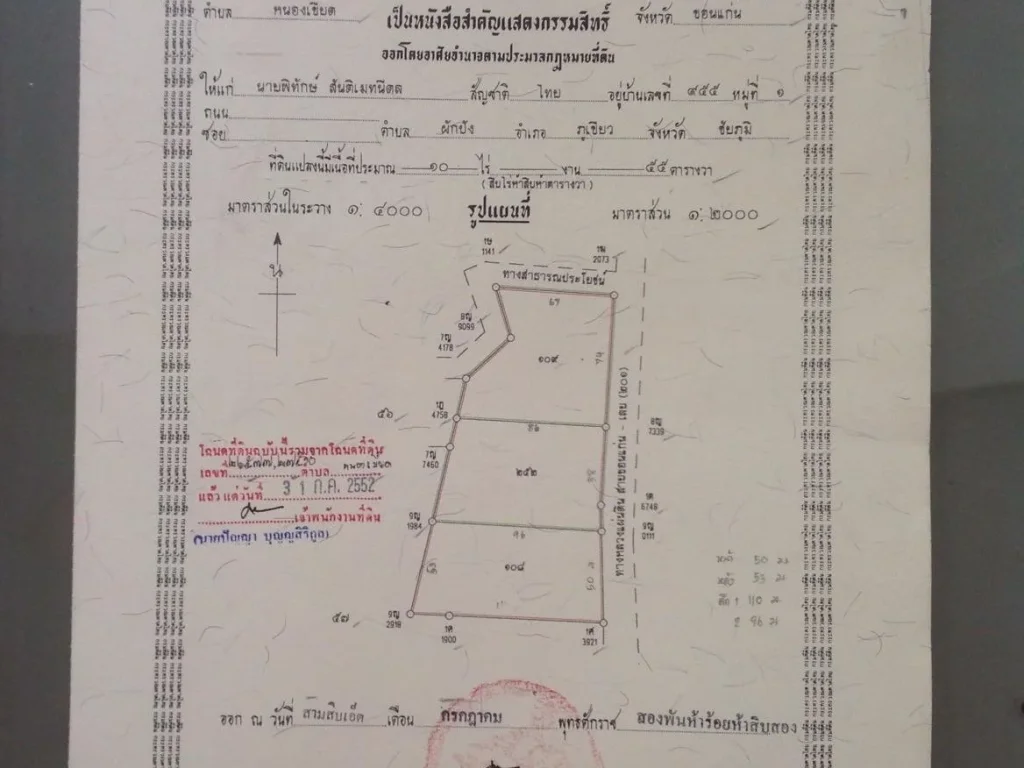 ตำบล หนองเขียด เป็นหนังสือสำคัญแสดงกรรมสิทธิ์ จังหวัด ขอนแก่น
ออกโดยอาศัยอำนาจตามประมวลกฎหมายที่ดิน
ให้แก่ นายพิทักษ์ สันติเมทนีดล สัญชาติ ไทย อยู่บ้านเลขที่ ๙๕๕ หมู่ที่ ๑
ถนน
ซอย ตำบล ผักปัง อำเภอ ภูเขียว จังหวัด ชัยภูมิ
ที่ดินแปลงนี้มีเนื้อที่ประมาณ ๑๐ ไร่ งาน ๕๕ ตารางวา
(สิบไร่ห้าสิบห้าตารางวา)
มาตราส่วนในระวาง ๑: ๔๐๐๐ รูปแผนที่ มาตราส่วน ๑: ๒๐๐๐
น
1141
2073
ทางสาธารณประโยชน์
67
9099
4178
๑๐๙
74
๕๖
4758
86
7339
ทางหลวงแผ่นดิน สายขอนแก่น - เลย (๒๐๑)
7460
๒๕๒
6748
1984
96
๑๐๘
๕๗
2818
1900
3921
โฉนดที่ดินฉบับนี้รวมจากโฉนดที่ดิน
เลขที่ ตำบล
แล้วแต่วันที่ 31 ก.ค. 2552
เจ้าพนักงานที่ดิน
(นายปัญญา บุญญสิริกูล)
50 ม
53 ม
110 ม
2 96 ม
ออก ณ วันที่ สามสิบเอ็ด เดือน กรกฎาคม พุทธศักราช สองพันห้าร้อยห้าสิบสอง